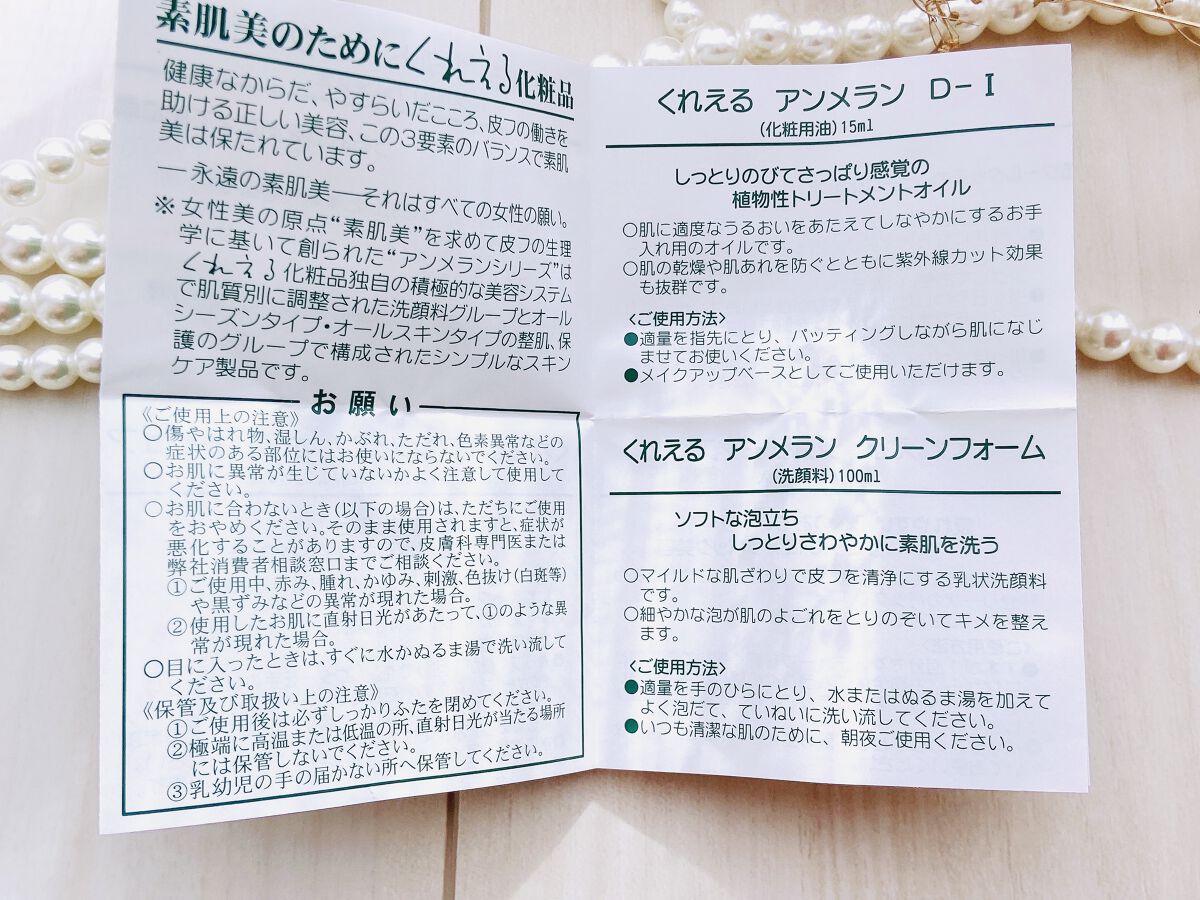 素肌美のためにくれえる化粧品
健康なからだ、やすらいだこころ、皮フの働きを
助ける正しい美容、この3要素のバランスで素肌
美は保たれています。
―永遠の素肌美―それはすべての女性の願い。
※女性美の原点“素肌美”を求めて皮フの生理
学に基いて創られた“アンメランシリーズ”は
くれえる化粧品独自の積極的な美容システム
で肌質別に調整された洗顔料グループとオール
シーズンタイプ・オールスキンタイプの整肌、保
護のグループで構成されたシンプルなスキン
ケア製品です。
お願い
《ご使用上の注意》
○傷やはれ物、湿しん、かぶれ、ただれ、色素異常などの
症状のある部位にはお使いにならないでください。
○お肌に異常が生じていないかよく注意して使用して
ください。
○お肌に合わないとき(以下の場合)は、ただちにご使用
をおやめください。そのまま使用されますと、症状が
悪化することがありますので、皮膚科専門医または
弊社消費者相談窓口までご相談ください。
①ご使用中、赤み、腫れ、かゆみ、刺激、色抜け(白斑等)
や黒ずみなどの異常が現れた場合。
②使用したお肌に直射日光があたって、①のような異
常が現れた場合。
○目に入ったときは、すぐに水かぬるま湯で洗い流して
ください。
《保管及び取扱い上の注意》
①ご使用後は必ずしっかりふたを閉めてください。
②極端に高温または低温の所、直射日光が当たる場所
には保管しないでください。
③乳幼児の手の届かない所へ保管してください。
くれえる アンメラン D-I
(化粧用油)15ml
しっとりのびてさっぱり感覚の
植物性トリートメントオイル
○肌に適度なうるおいをあたえてしなやかにするお手
入れ用のオイルです。
○肌の乾燥や肌あれを防ぐとともに紫外線カット効果
も抜群です。
<ご使用方法>
●適量を指先にとり、パッティングしながら肌になじ
ませてお使いください。
●メイクアップベースとしてご使用いただけます。
くれえる アンメラン クリーンフォーム
(洗顔料)100ml
ソフトな泡立ち
しっとりさわやかに素肌を洗う
○マイルドな肌ざわりで皮フを清浄にする乳状洗顔料
です。
○細やかな泡が肌のよごれをとりのぞいてキメを整え
ます。
<ご使用方法>
●適量を手のひらにとり、水またはぬるま湯を加えて
よく泡だて、ていねいに洗い流してください。
●いつも清潔な肌のために、朝夜ご使用ください。